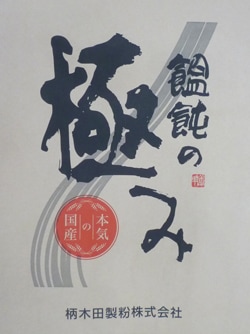 饂飩の
極み
本気
の
国産
柄木田製粉株式会社